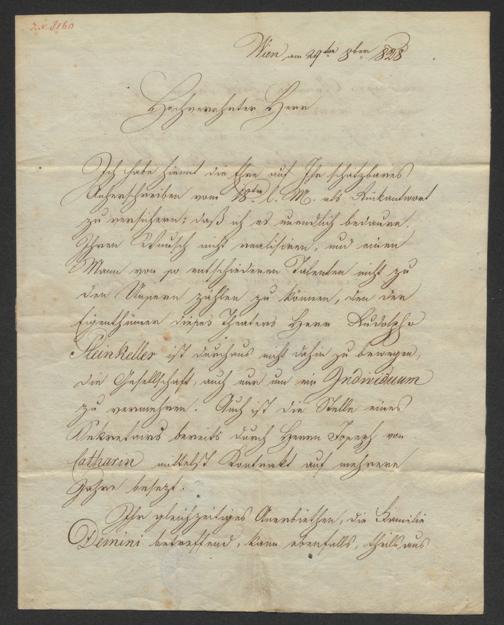 Wien am 29ten 8ber 1828
Hochverehrter Herr
Ich habe hiemit die Ehre auf Ihr schätzbares
Anherschreiben vom 18ten l. M. als Rückantwort
zu versichern; daß ich es unendlich bedaure,
Ihren Wunsch nicht realisiren, und einen
Mann von so entschiedenen Talenten nicht zu
den Unsern zählen zu können, den der
Eigenthümer dieses Theaters Herr Rudolph
Steinkeller ist durchaus nicht dahin zu bewegen,
die Gesellschaft, auch nur um ein Individuum
zu vermehren. Auch ist die Stelle eines
Sekretairs bereits durch Herrn Joseph von
Catharin mittelst Kontrakt auf mehrere
Jahre besezt.
Ihr gleichzeitiges Anerbiethen, die Familie
Demini betreffend, kann ebenfalls, theils aus